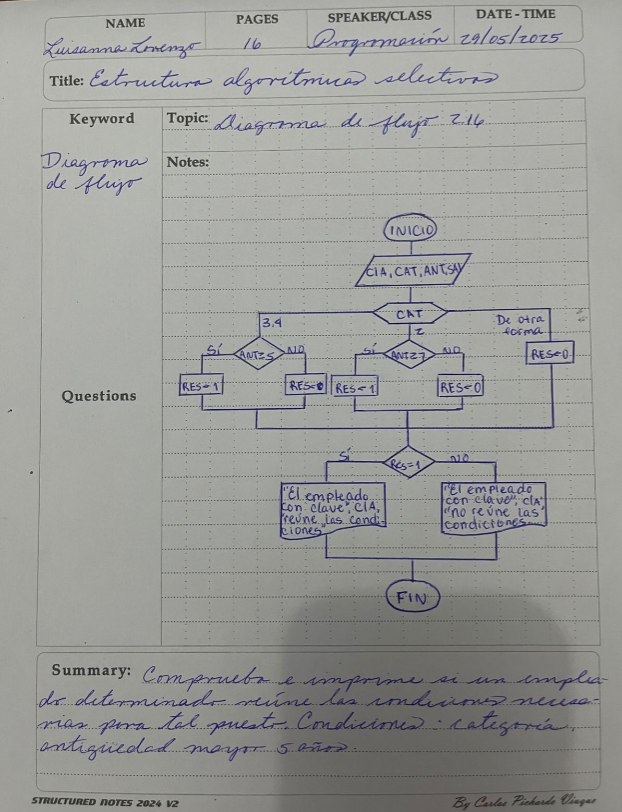 NAME PAGES SPEAKER/CLASS DATE - TIME
Luisanna Lorenzo 16 Programación 29/05/2025
Title: Estructura algorítmicas selectivas
Keyword Topic: Diagrama de flujo 2.16
Diagrama Notes:
de flujo
INICIO
CIA, CAT, ANT, SAL
CAT
3.4 2 De otra
forma
SÍ ANT≥5 NO SÍ ANT≥7 NO RES=0
RES=1 RES=0 RES=1 RES=0
Questions
SÍ Res=1 NO
"El empleado "El empleado
con clave", CIA, con clave", CIA,
"reúne las condi- "no reúne las
ciones" condiciones"
FIN
Summary: Comprueba e imprime si un emplea-
do determinado reúne las condiciones necesa-
rias para tal puesto. Condiciones: categoría,
antigüedad mayor 5 años.
STRUCTURED NOTES 2024 V2 By Carlos Pichardo Viuque